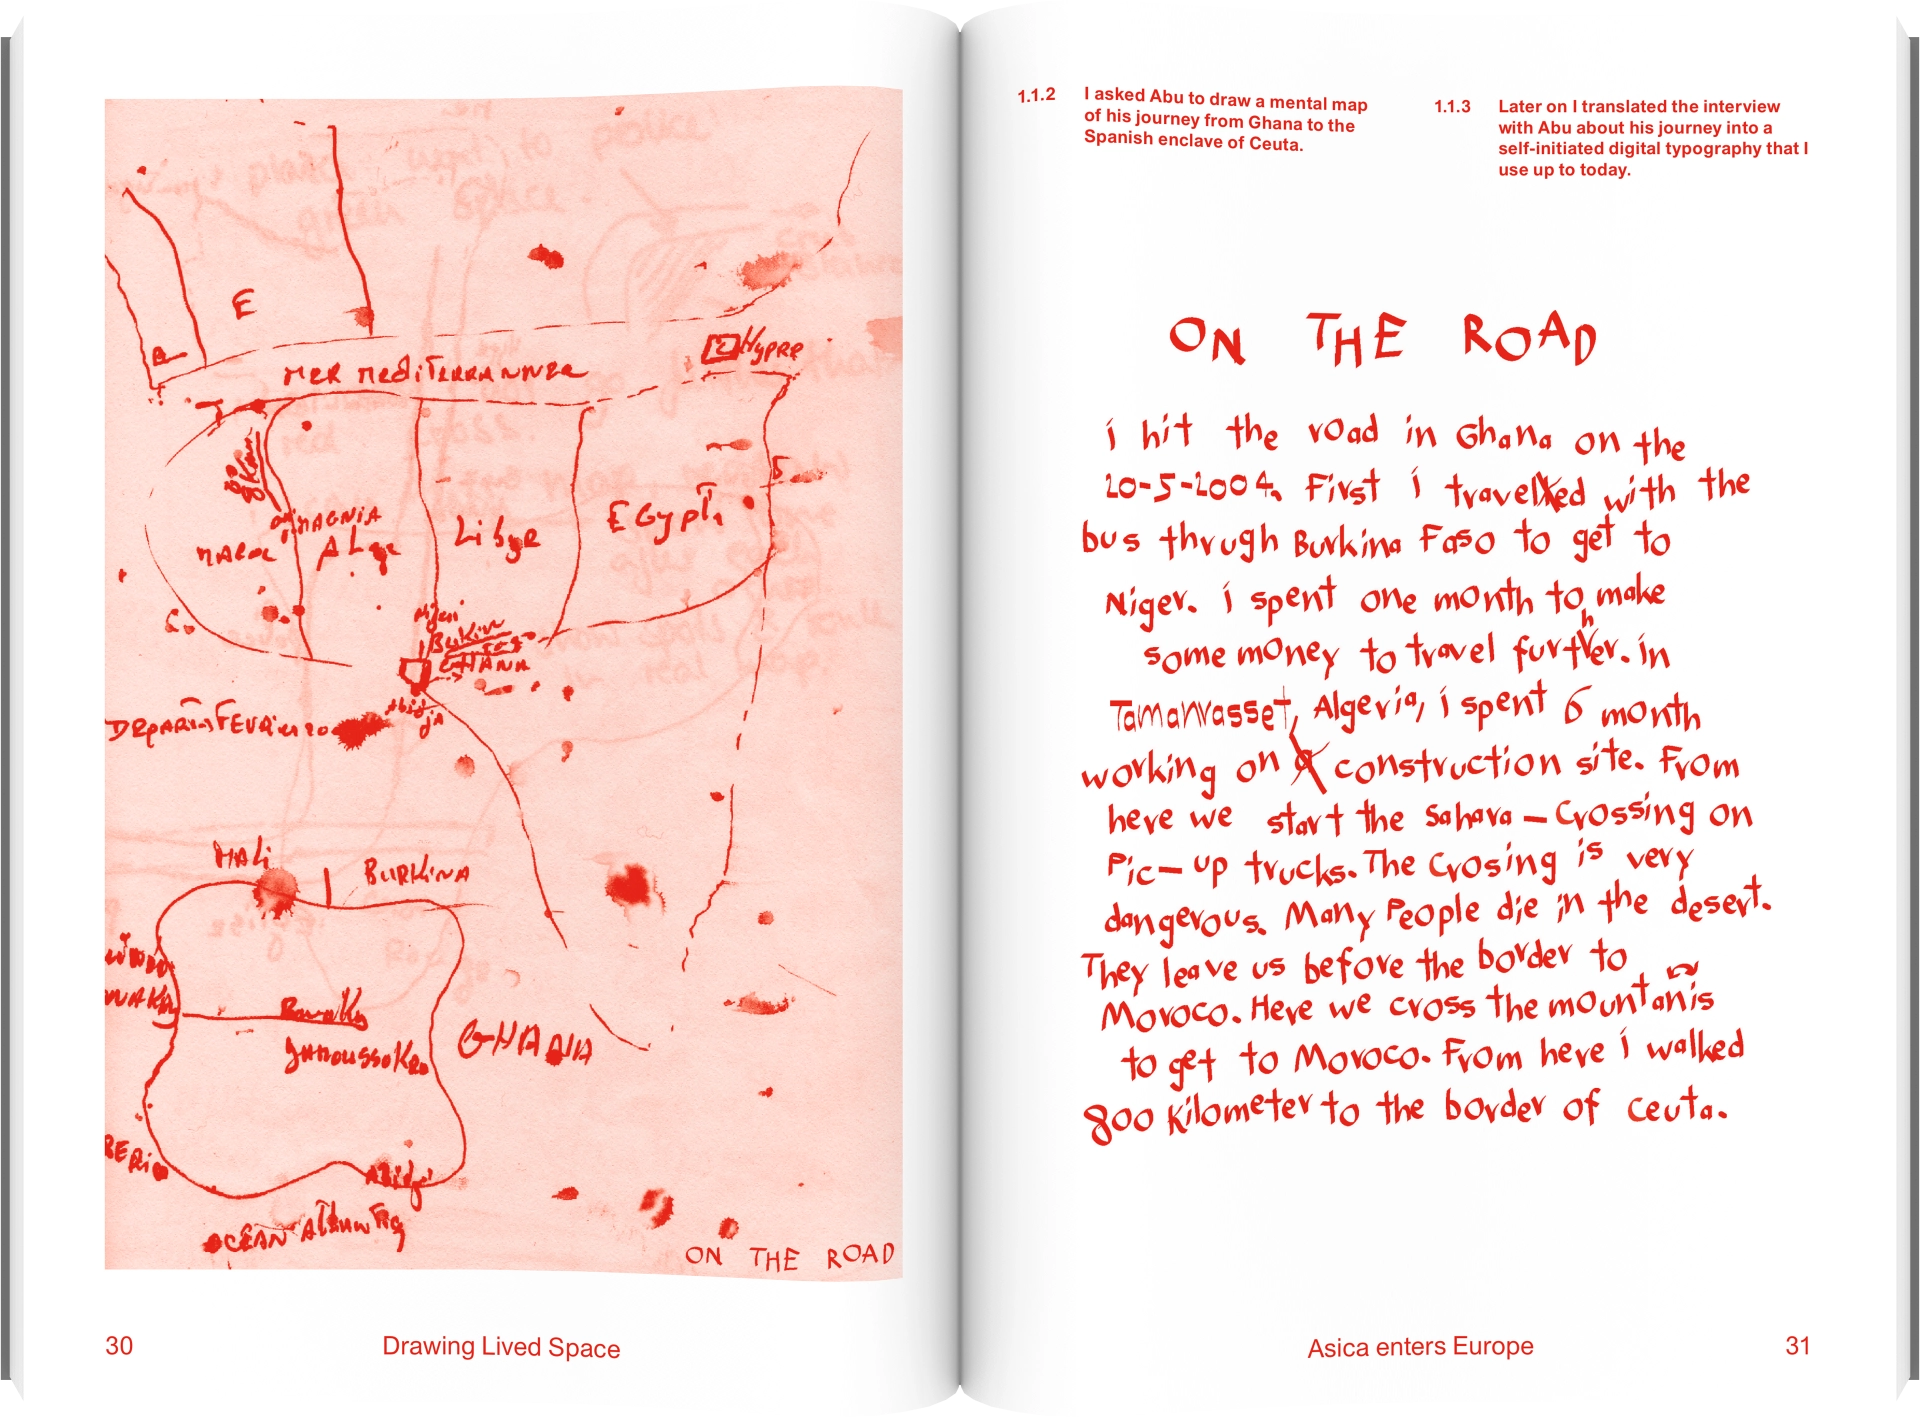 E
P
MER MEDITERRANNEE
Hypre
MAGNIA
MAROC
Alge
Libye
EGypTe
Burkin
GHANA
Abidja
MALi
BURKiNA
Bouaky
yamoussokro
GHANA
BERia
Abidji
OCEAN AtlanTiq
ON THE ROAD
30
Drawing Lived Space
1.1.2
I asked Abu to draw a mental map
of his journey from Ghana to the
Spanish enclave of Ceuta.
1.1.3
Later on I translated the interview
with Abu about his journey into a
self-initiated digital typography that I
use up to today.
ON THE ROAD
i hit the road in Ghana on the
20-5-2004. First i travelled with the
bus thrugh Burkina Faso to get to
Niger. i spent one month to make
some money to travel further. in
Tamanrasset, Algeria, i spent 6 month
working on a construction site. From
here we start the Sahara-Crossing on
Pic-up trucks. The Crosing is very
dangerous. Many People die in the desert.
They leave us before the border to
Moroco. Here we cross the mountanis
to get to Moroco. From here i walked
800 Kilometer to the border of Ceuta.
Asica enters Europe
31